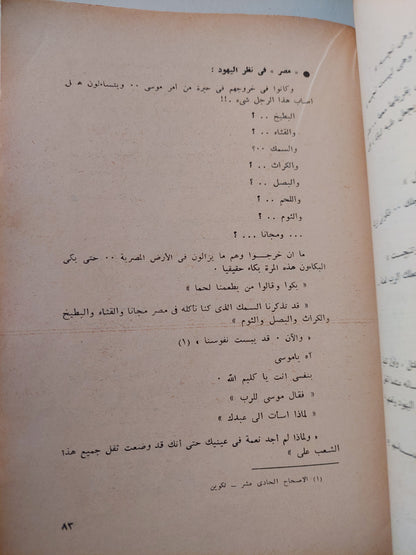 ● « مصر » فى نظر اليهود :
وكانوا فى خروجهم فى حيرة من امر موسى ٠٠ ويتساءلون هل
اصاب هذا الرجل شىء ٠٠ !!
البطيخ ٠٠ ؟
والقثاء ٠٠ ؟
والسمك ٠٠ ؟
والكراث ٠٠ ؟
والبصل ٠٠ ؟
واللحم ٠٠ ؟
والثوم ٠٠ ؟
٠٠٠ ومجانا ٠٠ ؟
ما ان خرجوا وهم ما يزالون فى الأرض المصرية ٠٠ حتى بكى
البكاءون هذه المرة بكاء حقيقيا ٠
« بكوا وقالوا من يطعمنا لحما »
« قد تذكرنا السمك الذى كنا نأكله فى مصر مجانا والقثاء والبطيخ
والكراث والبصل والثوم »
« والآن ٠ قد يبست نفوسنا » (١)
آه ياموسى
بنفسى انت يا كليم الله ٠
« فقال موسى للرب »
« لماذا اسأت الى عبدك »
« ولماذا لم أجد نعمة فى عينيك حتى أنك قد وضعت ثقل جميع هذا
الشعب على »
(١) الاصحاح الحادى عشر ــ تكوين
٨٣